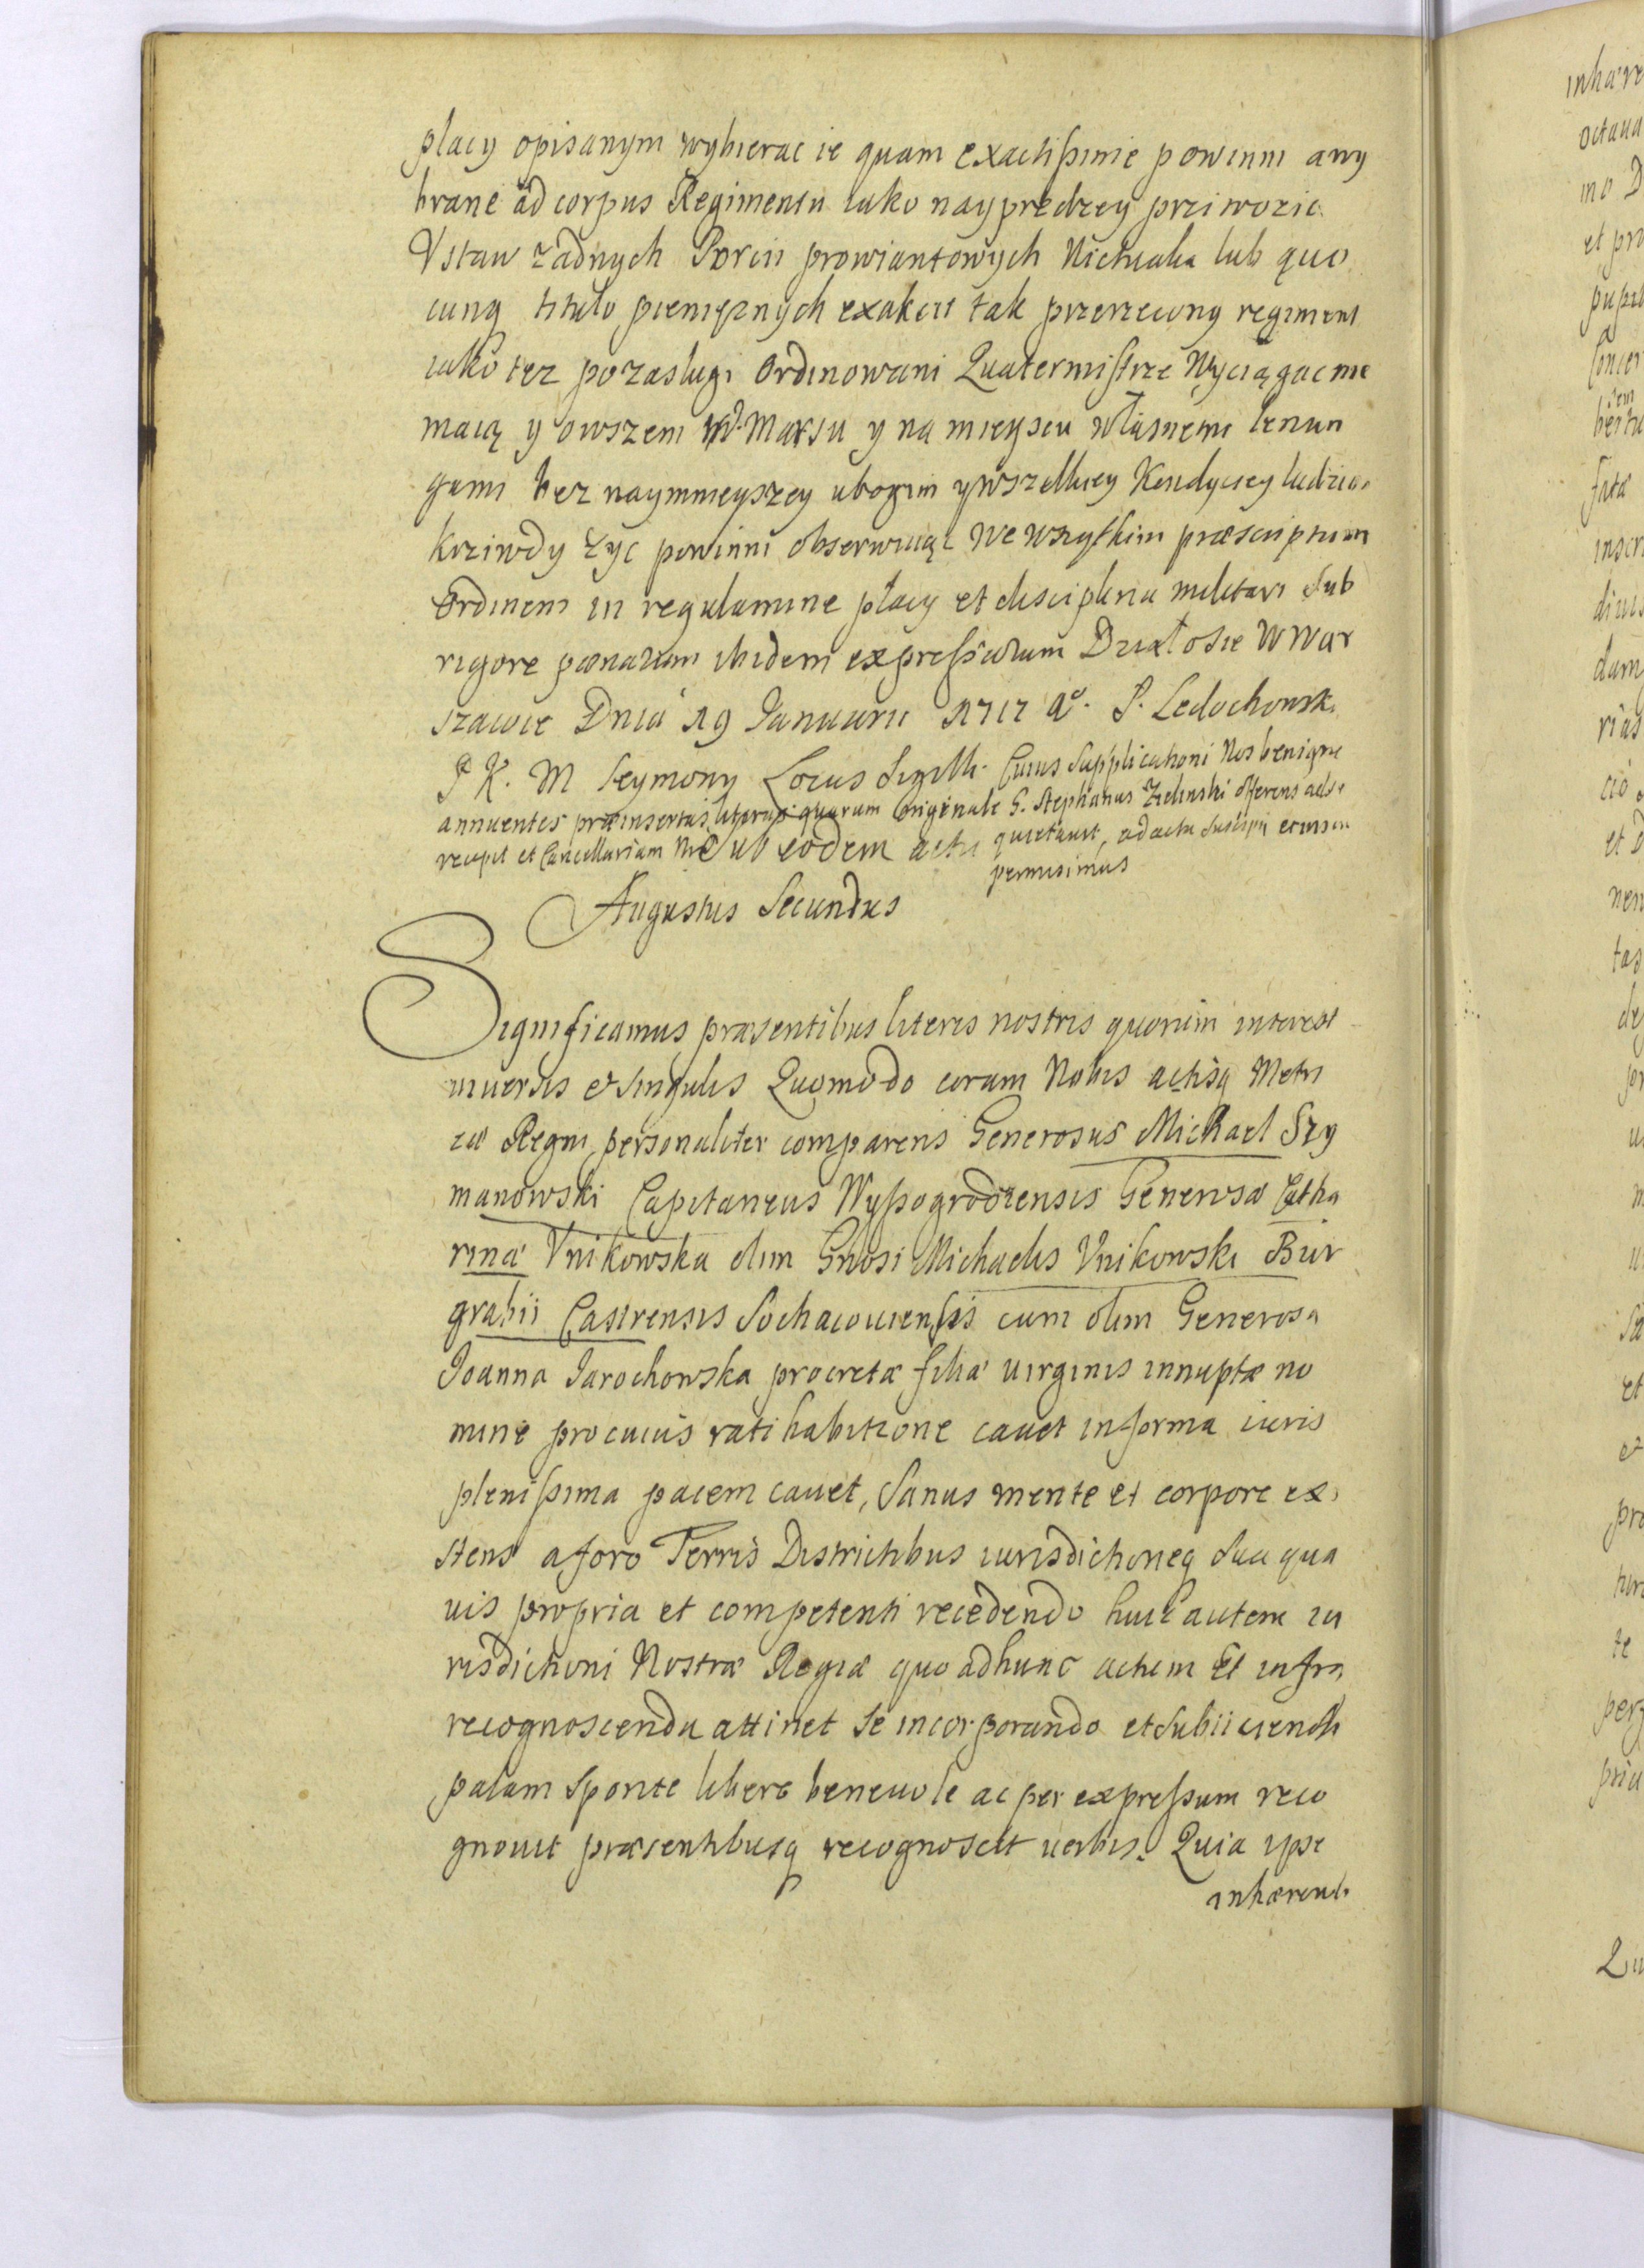 placy opisanym wybierac ie quam exactißime powinni a wy
brane ad corpus Regimentu iako nayprędzey przi wozic
Vstaw żadnych Porcii prowiantowych Nictualia lub quo
cunq titulo pieniężnych exakcii tak przerzeczony regiment
iako tez po zasługi Ordinowani Quatermistrze Wyciągac nie
maią y owszem W Marsu y na mieyscu własnemi lenun
gami bez naymnieyszey ubogim y wszelkiey Kondyciey ludziom
krziwdy życ powinni obserwuiąc we wszytkim præscriptum
ordinem in regulamine płacy et disciplina militari sub
rigore pœnarum ibidem expreßarum Działo sie w War
szawie Dnia 19 Januarii 1717 Ao. S. Ledochowsk.
J K. M Seymony Locus Sigilli. Cuius Supplicationi Nos benigne
annuentes præinsertas literas quarum Originale G. Stephanus Zielinski offerens ad se
recepit et Cancellariam quietavit, ad acta suscipi
permisimus
Sub eodem actu
Augustus Secundus
Significamus præsentibus literis nostris quorum interest
universis et singulis Quomodo coram Nobis actisq Metri
cæ Regni personaliter comparens Generosus Michael Szy
manowski Capitaneus Wyßogrodzensis Generosæ Catha
rinæ Vnikowska olim Gnosi Michaelis Vnikowski Bur
grabii Castrensis Sochacouiensis cum olim Generosa
Joanna Jarochowska procretæ filiæ uirginis innuptæ no
mine pro cuius ratihabitione cauet in forma iuris
plenißima pacem cauet, Sanus mente et corpore exi
stens a foro Terris Districtibus iurisdictioneq sua qua
uis propria et competenti recedendo huic autem iu
risdictioni Nostræ Regiæ quo ad hunc actum Et infra
recognoscenda attinet se incorporando et subiiciendo
palam Sponte libere beneuole ac per expreßum reco
gnouit præsentibusq recognoscit uerbis. Quia ipse
inhærendo